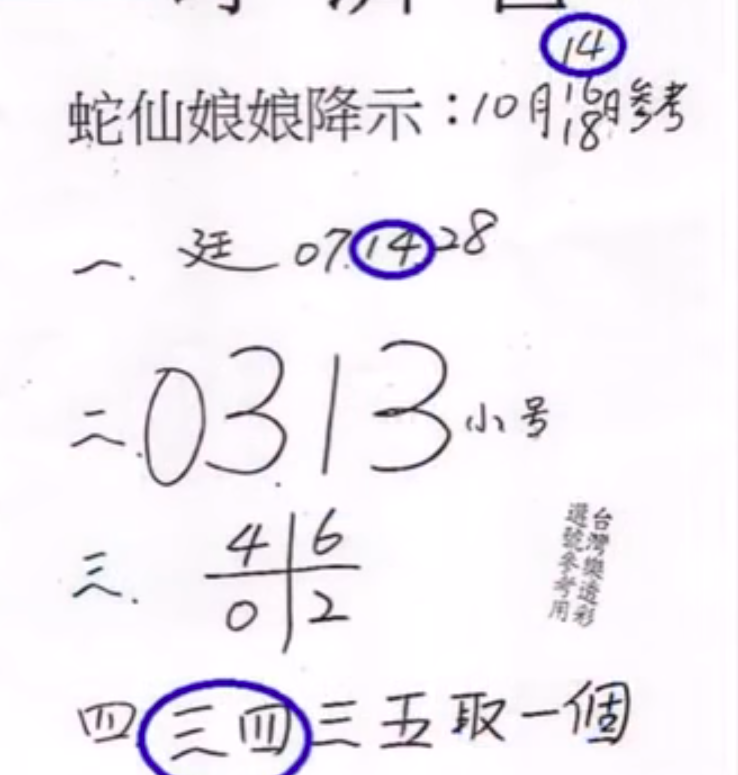 14
蛇仙娘娘降示：10月16 18日参考
一. 廷 07. 14 28
二. 0313 小号
三. 4 6
0 2
台灣樂透彩
選號參考用
四 三四 三五取一個